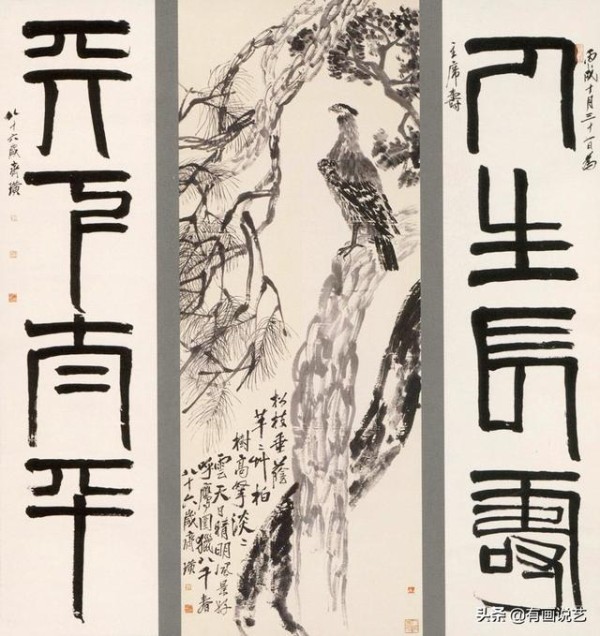 丙戌十月三十一日為
人生長壽
主席壽
松枝垂蔭
芊〻艸柏
樹高拏淡〻
雲天日晴明風景好
呼鷹圍獵八千春
八十六歲齊璜
天下太平
八十六歲齊璜
头条 @有画说艺